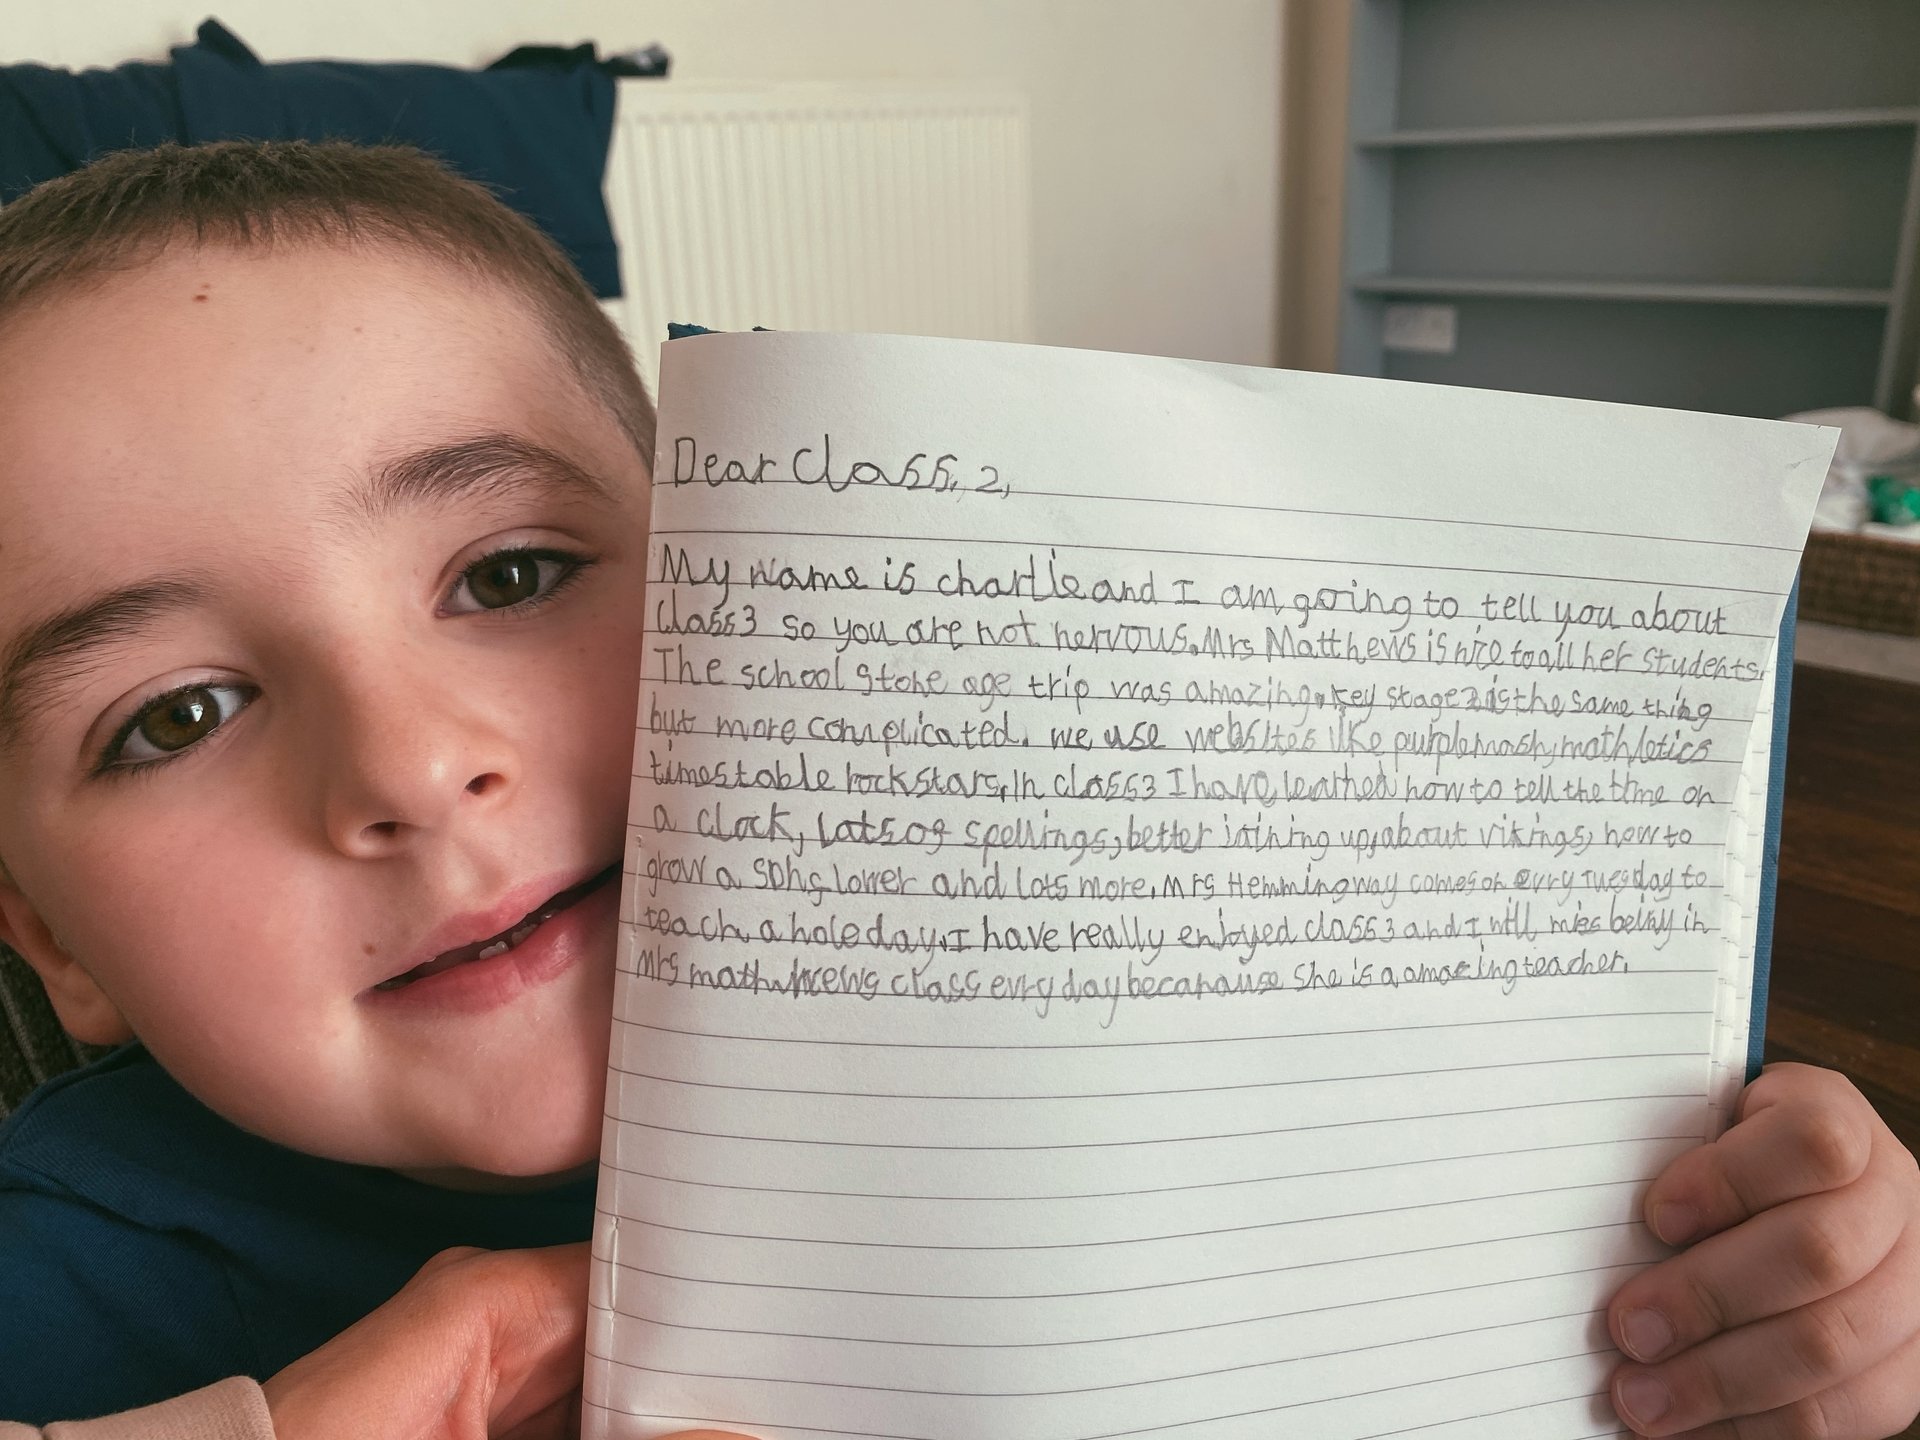 Dear Class, 2,
My name is charlie and I am going to tell you about
Class 3 so you are not nervous. Mrs Matthews is nice to all her students.
The school Stone age trip was amazing. key stage 2 is the same thing
but more complicated. we use websites like purplemash, mathletics
timestable rockstars, In class 3 I have learned how to tell the time on
a clock, lots of spellings, better joining up, about vikings, how to
grow a and lots more. Mrs Hemmingway comes on evry Tuesday to
teach a hole day. I have really enjoyed class 3 and I will miss being in
Mrs class evry day becanause She is a amazing teacher.